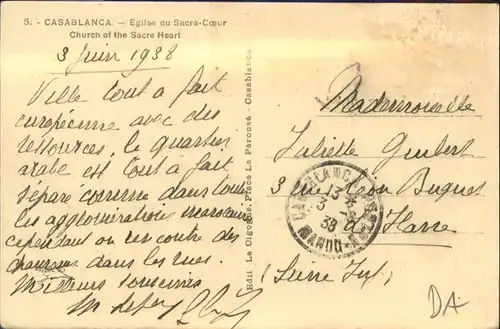 5. - CASABLANCA. — Eglise du Sacré-Cœur
Church of the Sacre Heart
3 Juin 1938
Ville tout à fait
européenne avec des
ressources, le quartier
arabe est tout à fait
séparé comme dans toutes
les agglomérations marocaines
cependant on rencontre des
dans les rues.
Meilleurs souvenirs
Edit. La Cigogne, Place La Pérouse - Casablanca
Mademoiselle
Juliette Guibert
3 rue Léon Buquet
Le Havre
(Seine Inf)
CASABLANCA POSTES
MAROC
3
38
DA